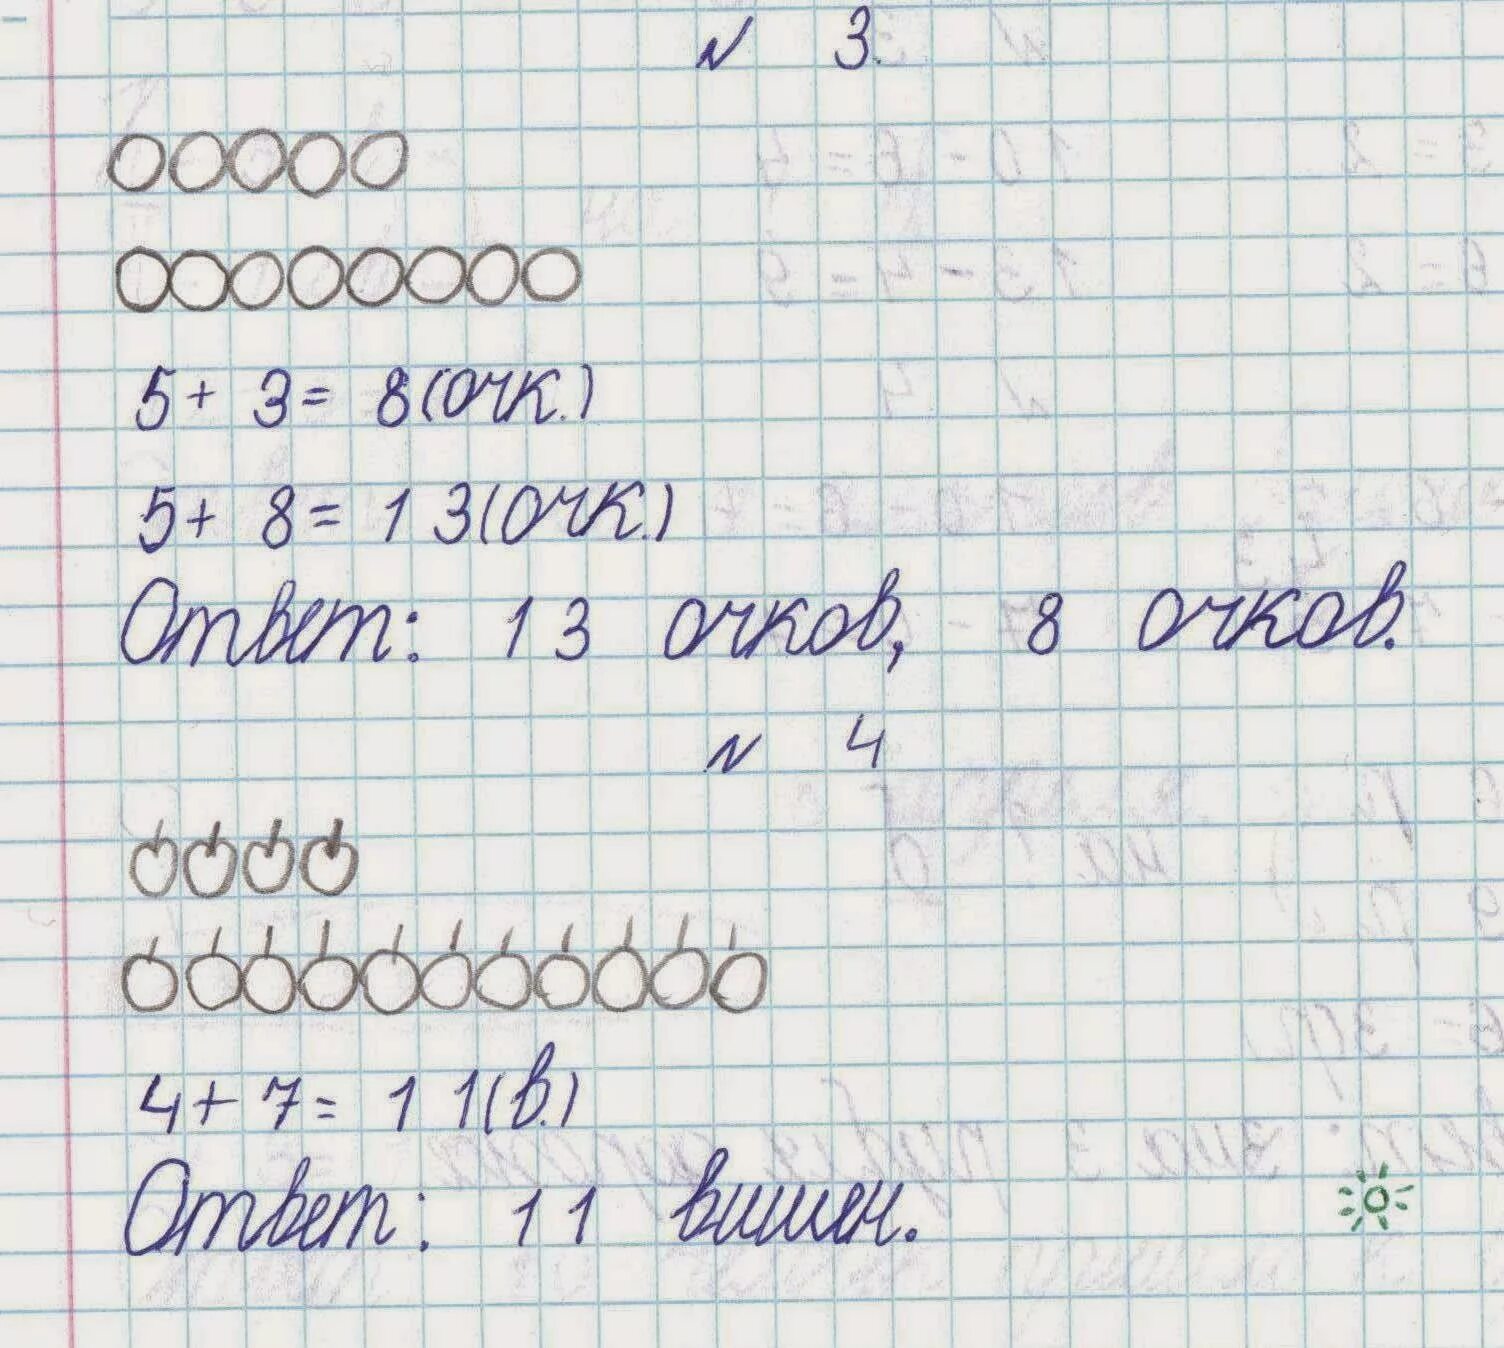 N 3.
5+ 3= 8(очк.)
5+ 8= 13(очк.)
Ответ: 13 очков, 8 очков.
N 4
4+ 7= 11(в.)
Ответ: 11 вишен.